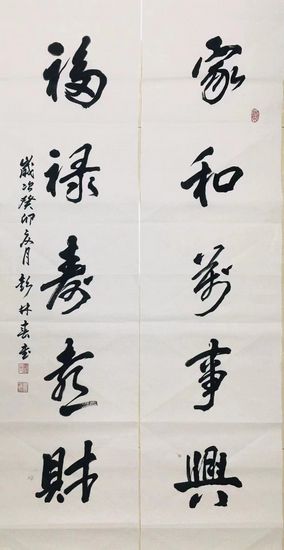 家和萬事興
福禄壽喜財
歲次癸卯夏月彭林春書